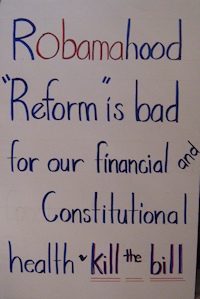 Robamahood
"Reform" is bad
for our financial and
Constitutional
health kill the bill